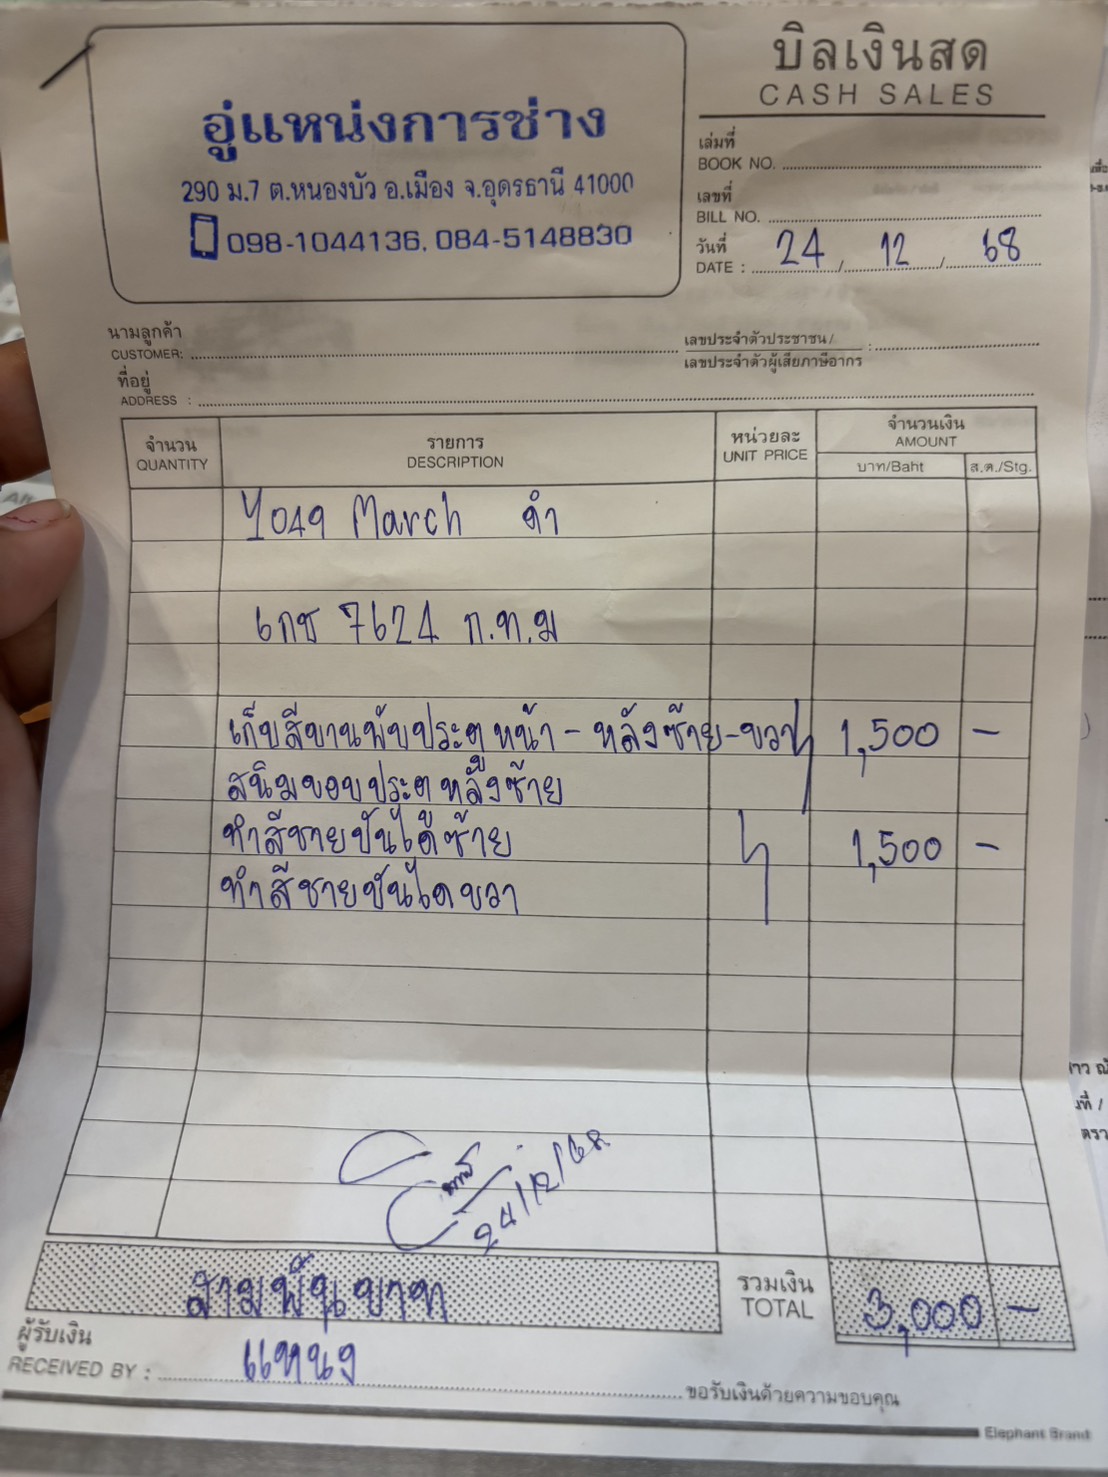 บิลเงินสด
CASH SALES
อู่แหน่งการช่าง
290 ม.7 ต.หนองบัว อ.เมือง จ.อุดรธานี 41000
098-1044136, 084-5148830
เล่มที่
BOOK NO.
เลขที่
BILL NO.
วันที่
DATE : 24 / 12 / 68
นามลูกค้า
CUSTOMER:
เลขประจำตัวประชาชน /
เลขประจำตัวผู้เสียภาษีอากร :
ที่อยู่
ADDRESS :
จำนวน รายการ หน่วยละ จำนวนเงิน
QUANTITY DESCRIPTION UNIT PRICE AMOUNT
บาท/Baht ส.ต./Stg.
Y049 March ดำ
6กช 7624 ก.ท.ม
เก็บสีบานพับประตูหน้า - หลังซ้าย-ขวา 1,500 -
สนิมขอบประตูหลังซ้าย
ทำสีชายบันไดซ้าย 1,500 -
ทำสีชายบันไดขวา
24/12/68
สามพันบาท
รวมเงิน
TOTAL 3,000 -
ผู้รับเงิน
RECEIVED BY : แหน่ง
ขอรับเงินด้วยความขอบคุณ
Elephant Brand